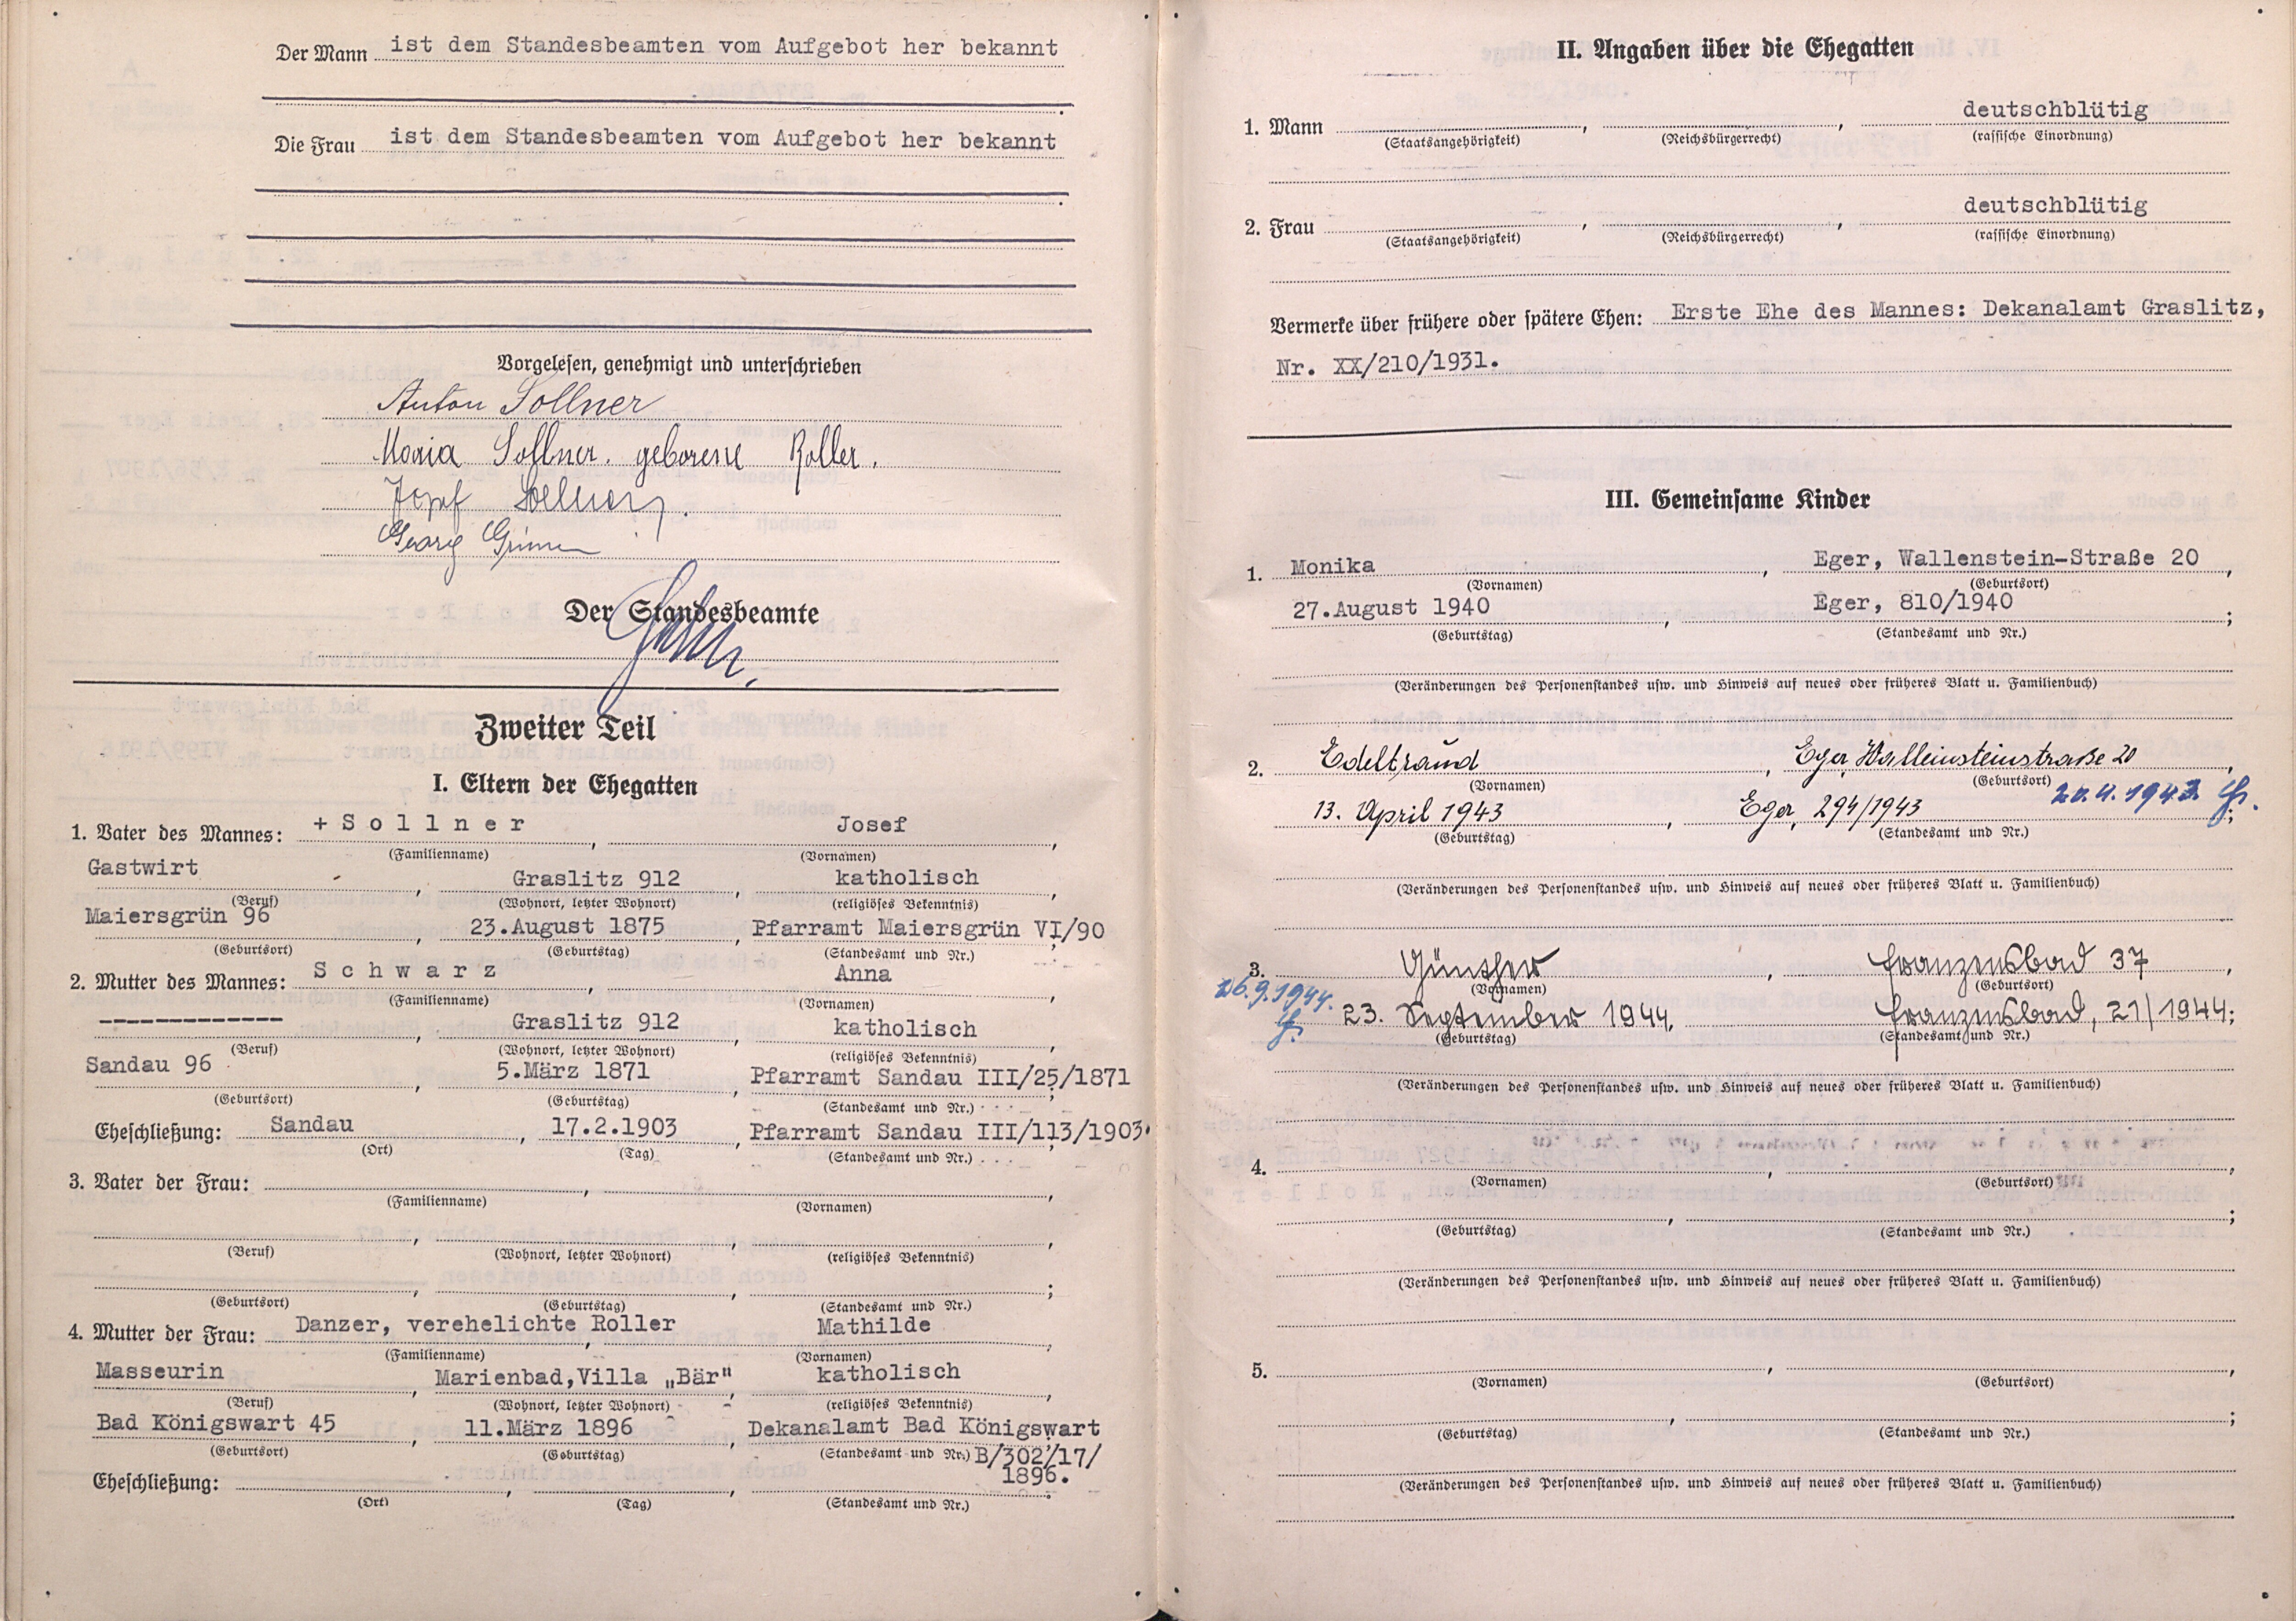 Der Mann ist dem Standesbeamten vom Aufgebot her bekannt
.
Die Frau ist dem Standesbeamten vom Aufgebot her bekannt
.
Vorgelesen, genehmigt und unterschrieben
Anton Sollner
Maria Sollner. geborene Roller.
Josef Sollner.
Georg
Der Standesbeamte
Zweiter Teil
I. Eltern der Ehegatten
1. Vater des Mannes: + S o l l n e r , Josef ,
(Familienname) (Vornamen)
Gastwirt , Graslitz 912 , katholisch ,
(Beruf) (Wohnort, letzter Wohnort) (religiöses Bekenntnis)
Maiersgrün 96 , 23.August 1875 , Pfarramt Maiersgrün VI/90 ;
(Geburtsort) (Geburtstag) (Standesamt und Nr.)
2. Mutter des Mannes: S c h w a r z , Anna ,
(Familienname) (Vornamen)
-------------- , Graslitz 912 , katholisch ,
(Beruf) (Wohnort, letzter Wohnort) (religiöses Bekenntnis)
Sandau 96 , 5.März 1871 , Pfarramt Sandau III/25/1871 ;
(Geburtsort) (Geburtstag) (Standesamt und Nr.)
Eheschließung: Sandau , 17.2.1903 , Pfarramt Sandau III/113/1903.
(Ort) (Tag) (Standesamt und Nr.)
3. Vater der Frau: , ,
(Familienname) (Vornamen)
, , ,
(Beruf) (Wohnort, letzter Wohnort) (religiöses Bekenntnis)
, , ;
(Geburtsort) (Geburtstag) (Standesamt und Nr.)
4. Mutter der Frau: Danzer, verehelichte Roller , Mathilde ,
(Familienname) (Vornamen)
Masseurin , Marienbad,Villa „Bär" , katholisch ,
(Beruf) (Wohnort, letzter Wohnort) (religiöses Bekenntnis)
Bad Königswart 45 , 11.März 1896 , Dekanalamt Bad Königswart
(Geburtsort) (Geburtstag) (Standesamt und Nr.) B/302/17/
1896.
Eheschließung: , , .
(Ort) (Tag) (Standesamt und Nr.)
II. Angaben über die Ehegatten
1. Mann , , deutschblütig
(Staatsangehörigkeit) (Reichsbürgerrecht) (rassische Einordnung)
2. Frau , , deutschblütig
(Staatsangehörigkeit) (Reichsbürgerrecht) (rassische Einordnung)
Vermerke über frühere oder spätere Ehen: Erste Ehe des Mannes: Dekanalamt Graslitz,
Nr. XX/210/1931.
III. Gemeinsame Kinder
1. Monika , Eger, Wallenstein-Straße 20 ,
(Vornamen) (Geburtsort)
27.August 1940 , Eger, 810/1940 ;
(Geburtstag) (Standesamt und Nr.)
(Veränderungen des Personenstandes usw. und Hinweis auf neues oder früheres Blatt u. Familienbuch)
2. Edeltraud , Eger, Walleinsteinstraße 20 ,
(Vornamen) (Geburtsort) 20.4.1943.
13. April 1943 , Eger, 294/1943 ;
(Geburtstag) (Standesamt und Nr.)
(Veränderungen des Personenstandes usw. und Hinweis auf neues oder früheres Blatt u. Familienbuch)
3. Günther , Franzensbad 37 ,
(Vornamen) (Geburtsort)
26.9.1944.
23. September 1944, Franzensbad, 21/1944;
(Geburtstag) (Standesamt und Nr.)
(Veränderungen des Personenstandes usw. und Hinweis auf neues oder früheres Blatt u. Familienbuch)
4. , ,
(Vornamen) (Geburtsort)
, ;
(Geburtstag) (Standesamt und Nr.)
(Veränderungen des Personenstandes usw. und Hinweis auf neues oder früheres Blatt u. Familienbuch)
5. , ,
(Vornamen) (Geburtsort)
, ;
(Geburtstag) (Standesamt und Nr.)
(Veränderungen des Personenstandes usw. und Hinweis auf neues oder früheres Blatt u. Familienbuch)